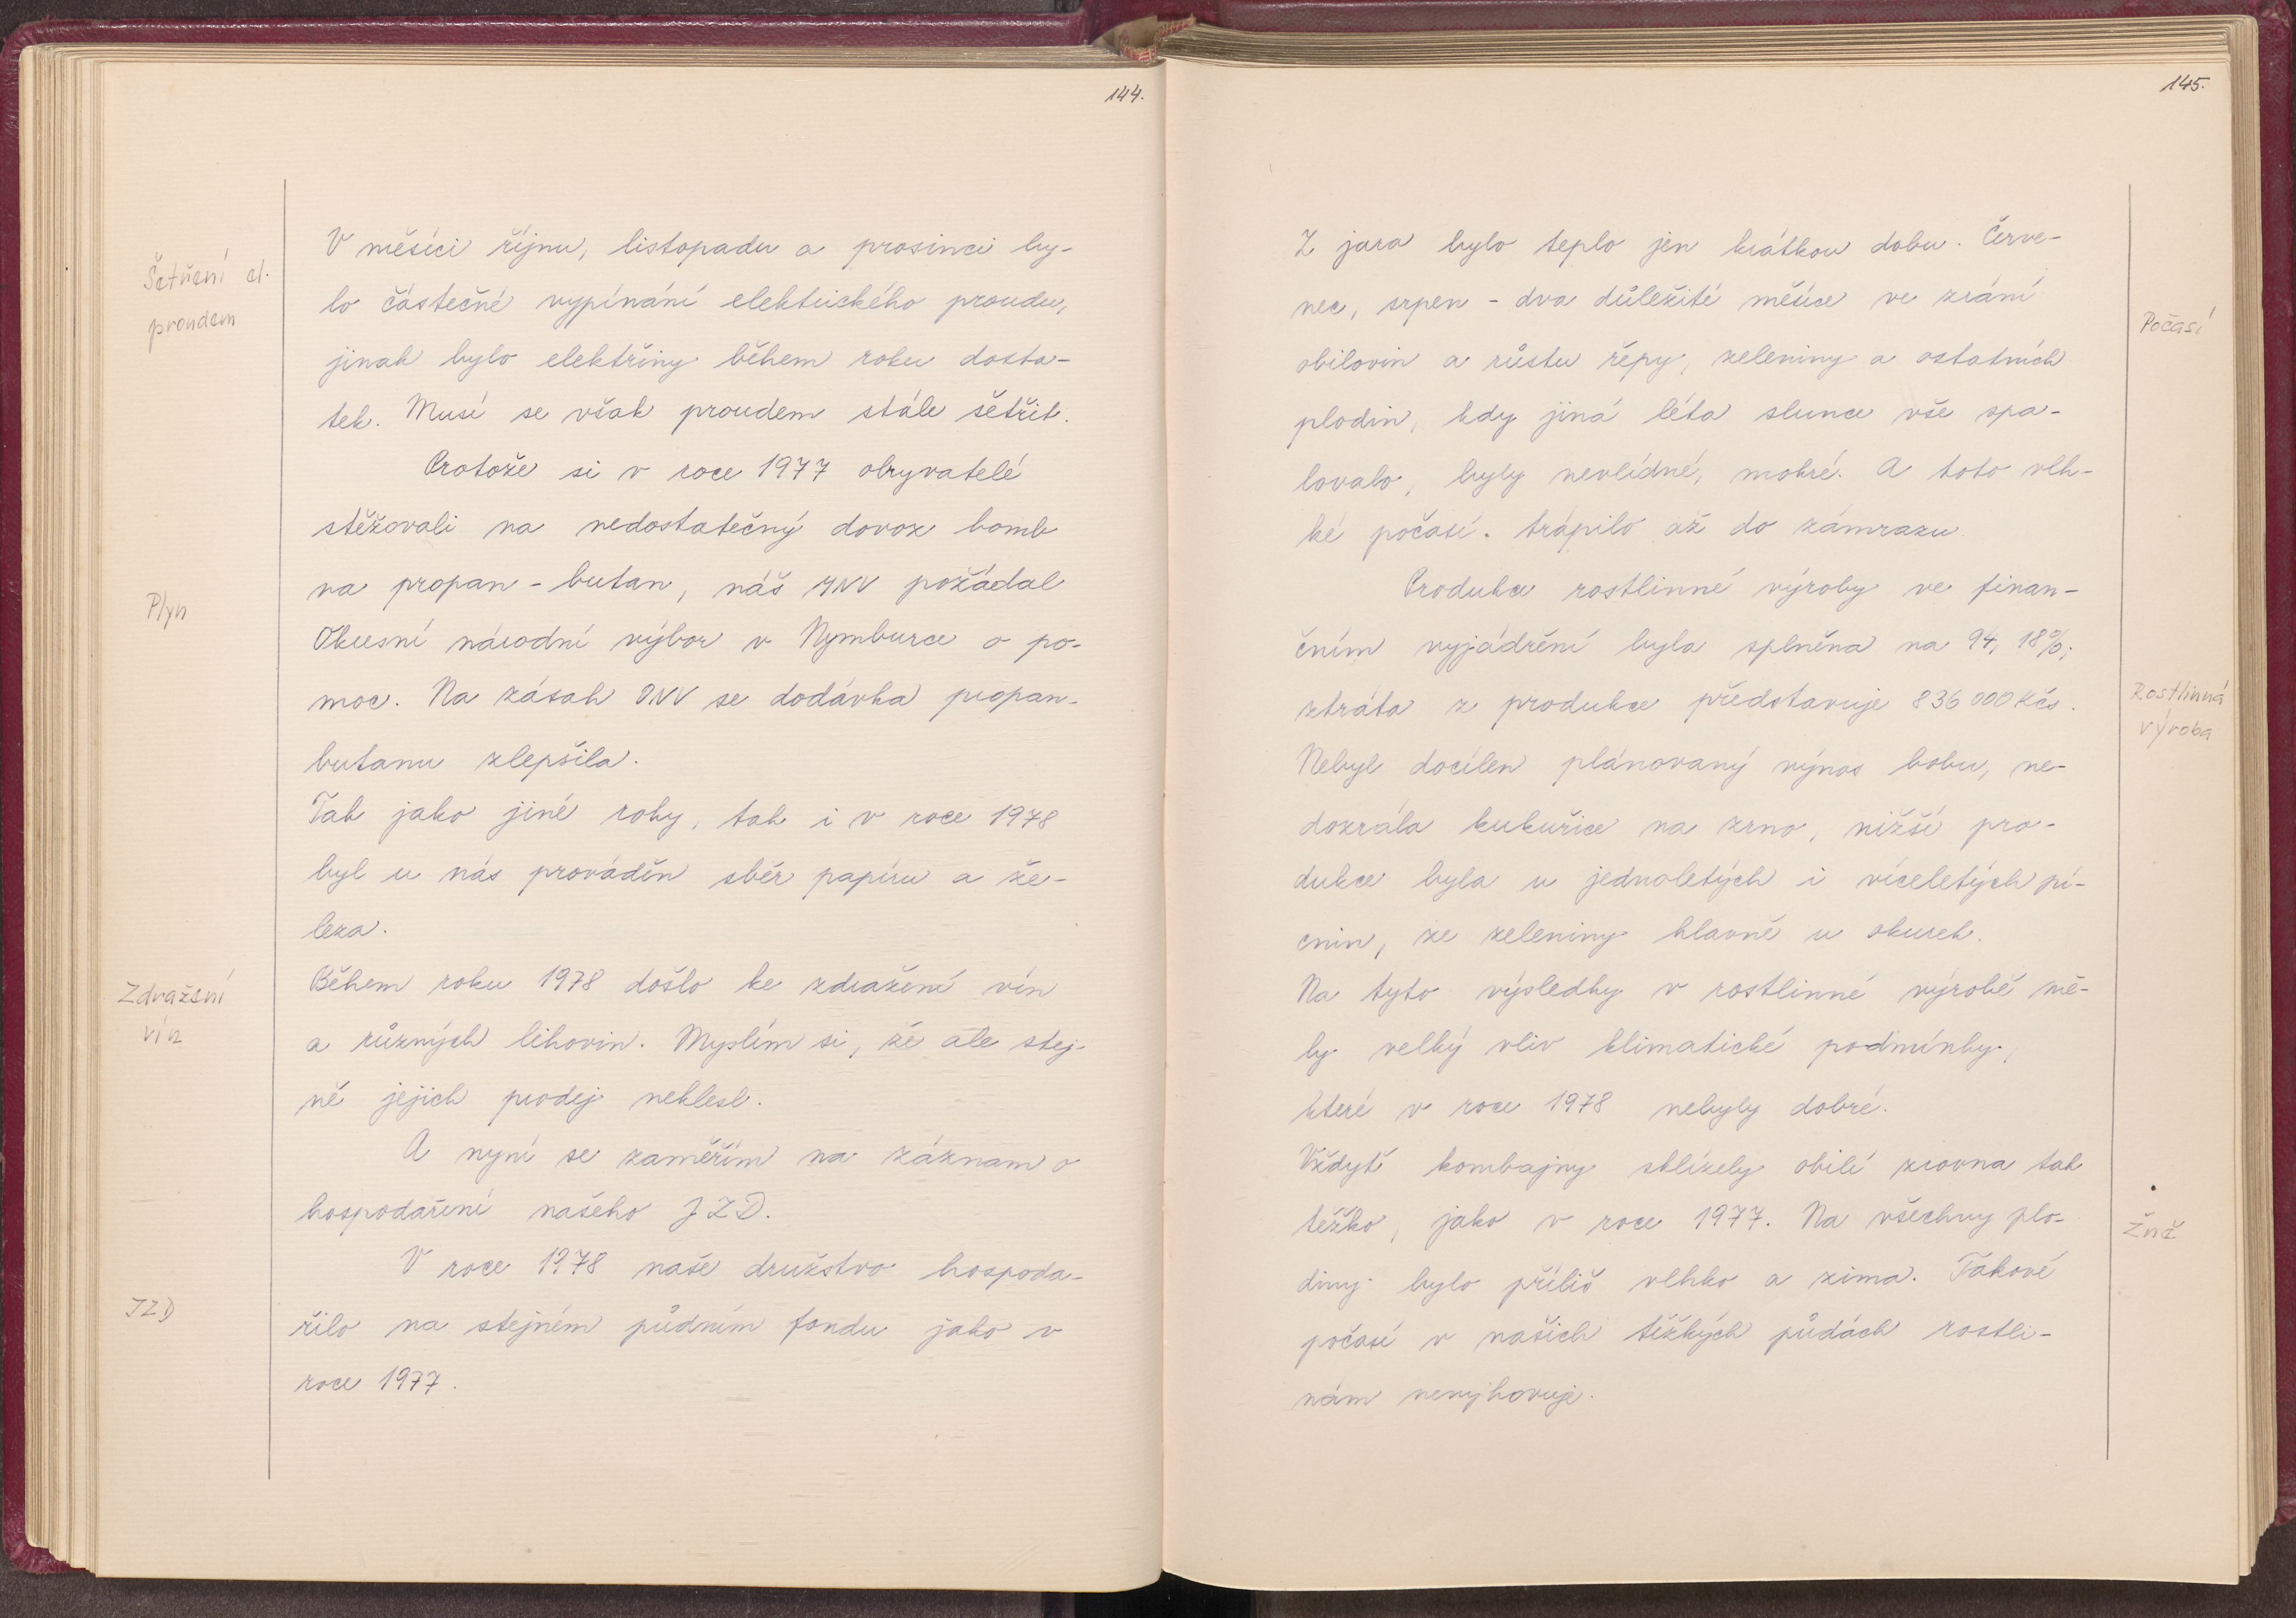 144.
Šetření el.
proudem
V měsíci říjnu, listopadu a prosinci by-
lo částečné vypínání elektrického proudu,
jinak bylo elektřiny během roku dosta-
tek. Musí se však proudem stále šetřit.
Protože si v roce 1977 obyvatelé
stěžovali na nedostatečný dovoz bomb
Plyn
na propan-butan, náš MNV požádal
Okresní národní výbor v Nymburce o po-
moc. Na zásah ONV se dodávka propan-
butanu zlepšila.
Tak jako jiné roky, tak i v roce 1978
byl u nás prováděn sběr papíru a že-
leza.
Zdražení
vín
Během roku 1978 došlo ke zdražení vín
a různých lihovin. Myslím si, že ale stej-
ně jejich prodej neklesl.
A nyní se zaměřím na záznam o
hospodaření našeho JZD.
JZD
V roce 1978 naše družstvo hospoda-
řilo na stejném půdním fondu jako v
roce 1977.
145.
Z jara bylo teplo jen krátkou dobu. Červe-
nec, srpen - dva důležité měsíce ve zrání
Počasí
obilovin a růstu řepy, zeleniny a ostatních
plodin, kdy jiná léta slunce vše spa-
lovalo, byly nevlídné, mokré. A toto vlh-
ké počasí. trápilo až do zámrazu.
Produkce rostlinné výroby ve finan-
čním vyjádření byla splněna na 94,18%;
Rostlinná
výroba
ztráta z produkce představuje 836 000 Kčs.
Nebyl docílen plánovaný výnos bobu, ne-
dozrála kukuřice na zrno, nižší pro-
dukce byla u jednoletých i víceletých pí-
cnin, ze zeleniny hlavně u okurek.
Na tyto výsledky v rostlinné výrobě mě-
ly velký vliv klimatické podmínky,
které v roce 1978 nebyly dobré.
Vždyť kombajny sklízely obilí zrovna tak
Žně
těžko, jako v roce 1977. Na všechny plo-
diny bylo příliš vlhko a zima. Takové
počasí v našich těžkých půdách rostli-
nám nevyhovuje.